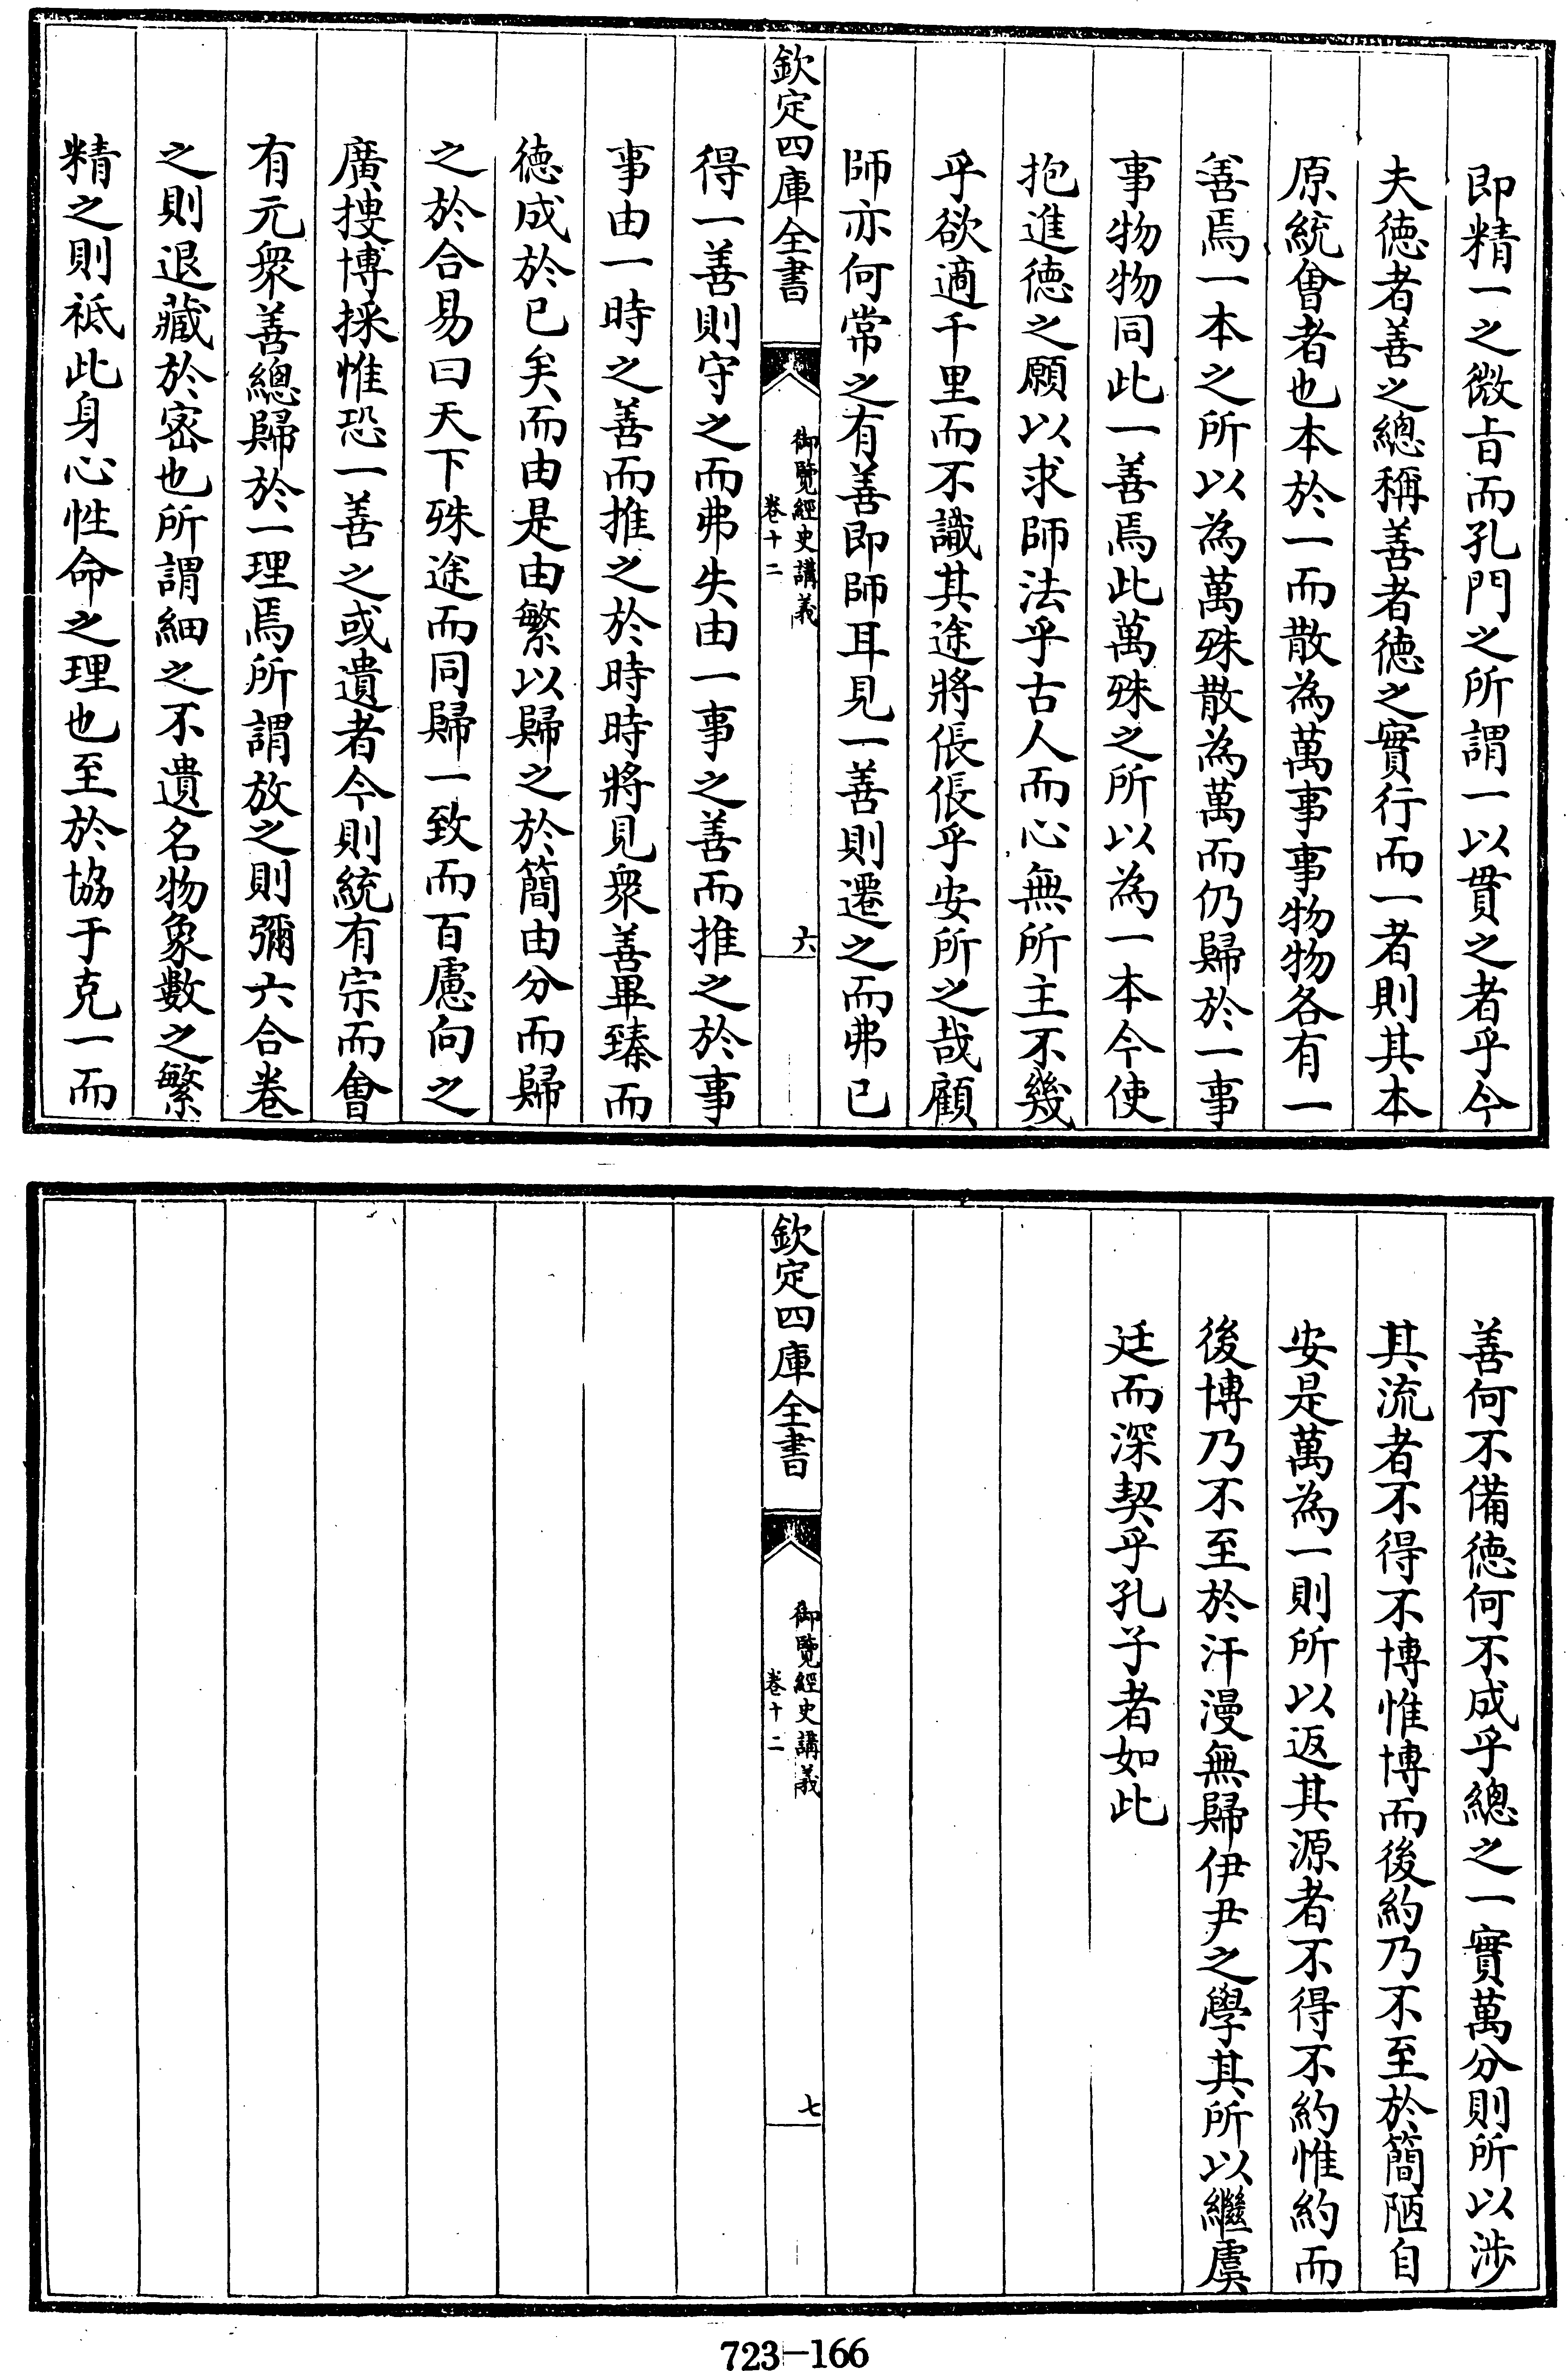 即精一之微旨而孔門之所謂一以貫之者乎今
夫徳者善之總稱善者徳之實行而一者則其本
原統會者也本於一而散為萬事事物物各有一
善焉一本之所以為萬殊散為萬而仍歸於一事
事物物同此一善焉此萬殊之所以為一本今使
抱進德之願以求師法乎古人而心無所主不幾
乎欲適千里而不識其途將倀倀乎安所之哉顧
師亦何常之有善即師耳見一善則遷之而弗已
欽定四庫全書
御覽經史講義
卷十二
六
得一善則守之而弗失由一事之善而推之於事
事由一時之善而推之於時時將見衆善畢臻而
徳成於已矣而由是由繁以歸之於簡由分而歸
之於合易曰天下殊途而同歸一致而百慮向之
廣捜博採惟恐一善之或遺者今則統有宗而會
有元衆善總歸於一理焉所謂放之則彌六合卷
之則退藏於密也所謂細之不遺名物象數之繁
精之則祗此身心性命之理也至於協于克一而
善何不備徳何不成乎總之一實萬分則所以涉
其流者不得不博惟博而後約乃不至於簡陋自
安是萬為一則所以返其源者不得不約惟約而
後博乃不至於汗漫無歸伊尹之學其所以繼虞
廷而深契乎孔子者如此
欽定四庫全書
御覽經史講義
卷十二
七
723-166